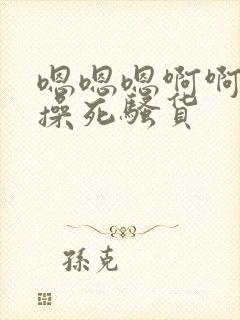 嗯嗯嗯啊啊
操死骚货
孫克